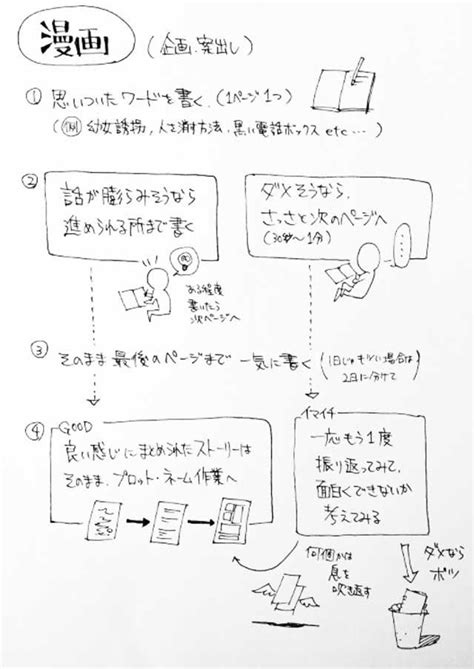 漫画
(企画.案出し)
① 思いついたワードを書く.(1ページ1つ)
(例) 幼女誘拐, 人を消す方法, 黒い電話ボックス etc…)
②
話が膨らみそうなら
進められる所まで書く
ダメそうなら、
さっさと次のページへ
(30秒〜1分)
ある程度
書いたら
次ページへ
③ そのまま最後のページまで 一気に書く (1日じゃもたない場合は
2日に分けて
④ GOOD
良い感じにまとめられたストーリーは
そのまま、プロット・ネーム作業へ
イマイチ
一応もう1度
振り返ってみて、
面白くできないか
考えてみる
何個かは
息を
吹き返す
ダメなら
ボツ